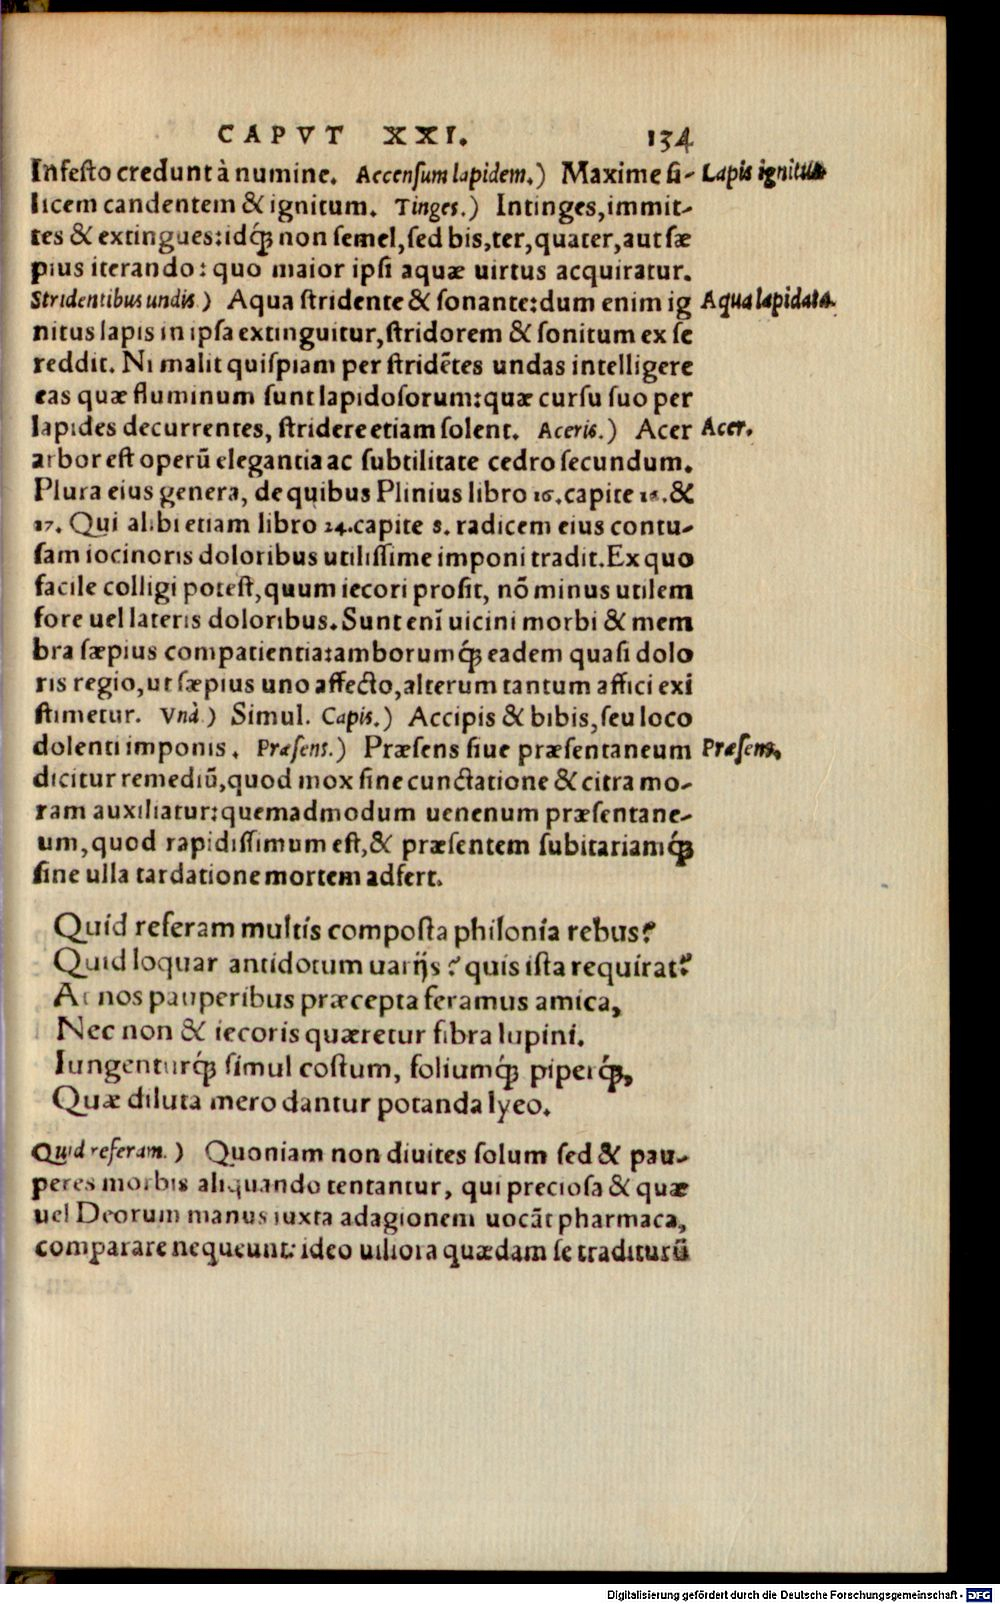 CAPVT XXI. 134
Infesto credunt à numine. Accensum lapidem.) Maxime si- Lapis ignitus
licem candentem & ignitum. Tinges.) Intinges, immit-
tes & extingues: idq́ꝫ non semel, sed bis, ter, quater, aut sæ
pius iterando: quo maior ipsi aquæ uirtus acquiratur.
Stridentibus undis.) Aqua stridente & sonante: dum enim ig Aqua lapidata.
nitus lapis in ipsa extinguitur, stridorem & sonitum ex se
reddit. Ni malit quispiam per stridẽtes undas intelligere
eas quæ fluminum sunt lapidosorum: quæ cursu suo per
lapides decurrentes, stridere etiam solent. Aceris.) Acer Acer.
arbor est operũ elegantia ac subtilitate cedro secundum.
Plura eius genera, de quibus Plinius libro 16. capite 15. &
17. Qui alibi etiam libro 24. capite 8. radicem eius contu-
sam iocinoris doloribus utilissime imponi tradit. Ex quo
facile colligi potest, quum iecori prosit, nõ minus utilem
fore uel lateris doloribus. Sunt enĩ uicini morbi & mem
bra sæpius compatientia: amborumq́ꝫ eadem quasi dolo
ris regio, ut sæpius uno affecto, alterum tantum affici exi
stimetur. Vnà.) Simul. Capis.) Accipis & bibis, seu loco
dolenti imponis. Præsens.) Præsens siue præsentaneum Præsens.
dicitur remediũ, quod mox sine cunctatione & citra mo-
ram auxiliatur: quemadmodum uenenum præsentane-
um, quod rapidissimum est, & præsentem subitariamq́ꝫ
sine ulla tardatione mortem adfert.
Quid referam multis composta philonia rebus?
Quid loquar antidotum uarijs? quis ista requirat?
At nos pauperibus præcepta feramus amica,
Nec non & iecoris quæretur fibra lupini.
Iungenturq́ꝫ simul costum, foliumq́ꝫ piperq́ꝫ,
Quæ diluta mero dantur potanda lyeo.
Quid referam.) Quoniam non diuites solum sed & pau-
peres morbis aliquando tentantur, qui preciosa & quæ
uel Deorum manus iuxta adagionem uocãt pharmaca,
comparare nequeunt: ideo uiliora quædam se traditurũ
Digitalisierung gefördert durch die Deutsche Forschungsgemeinschaft - DFG